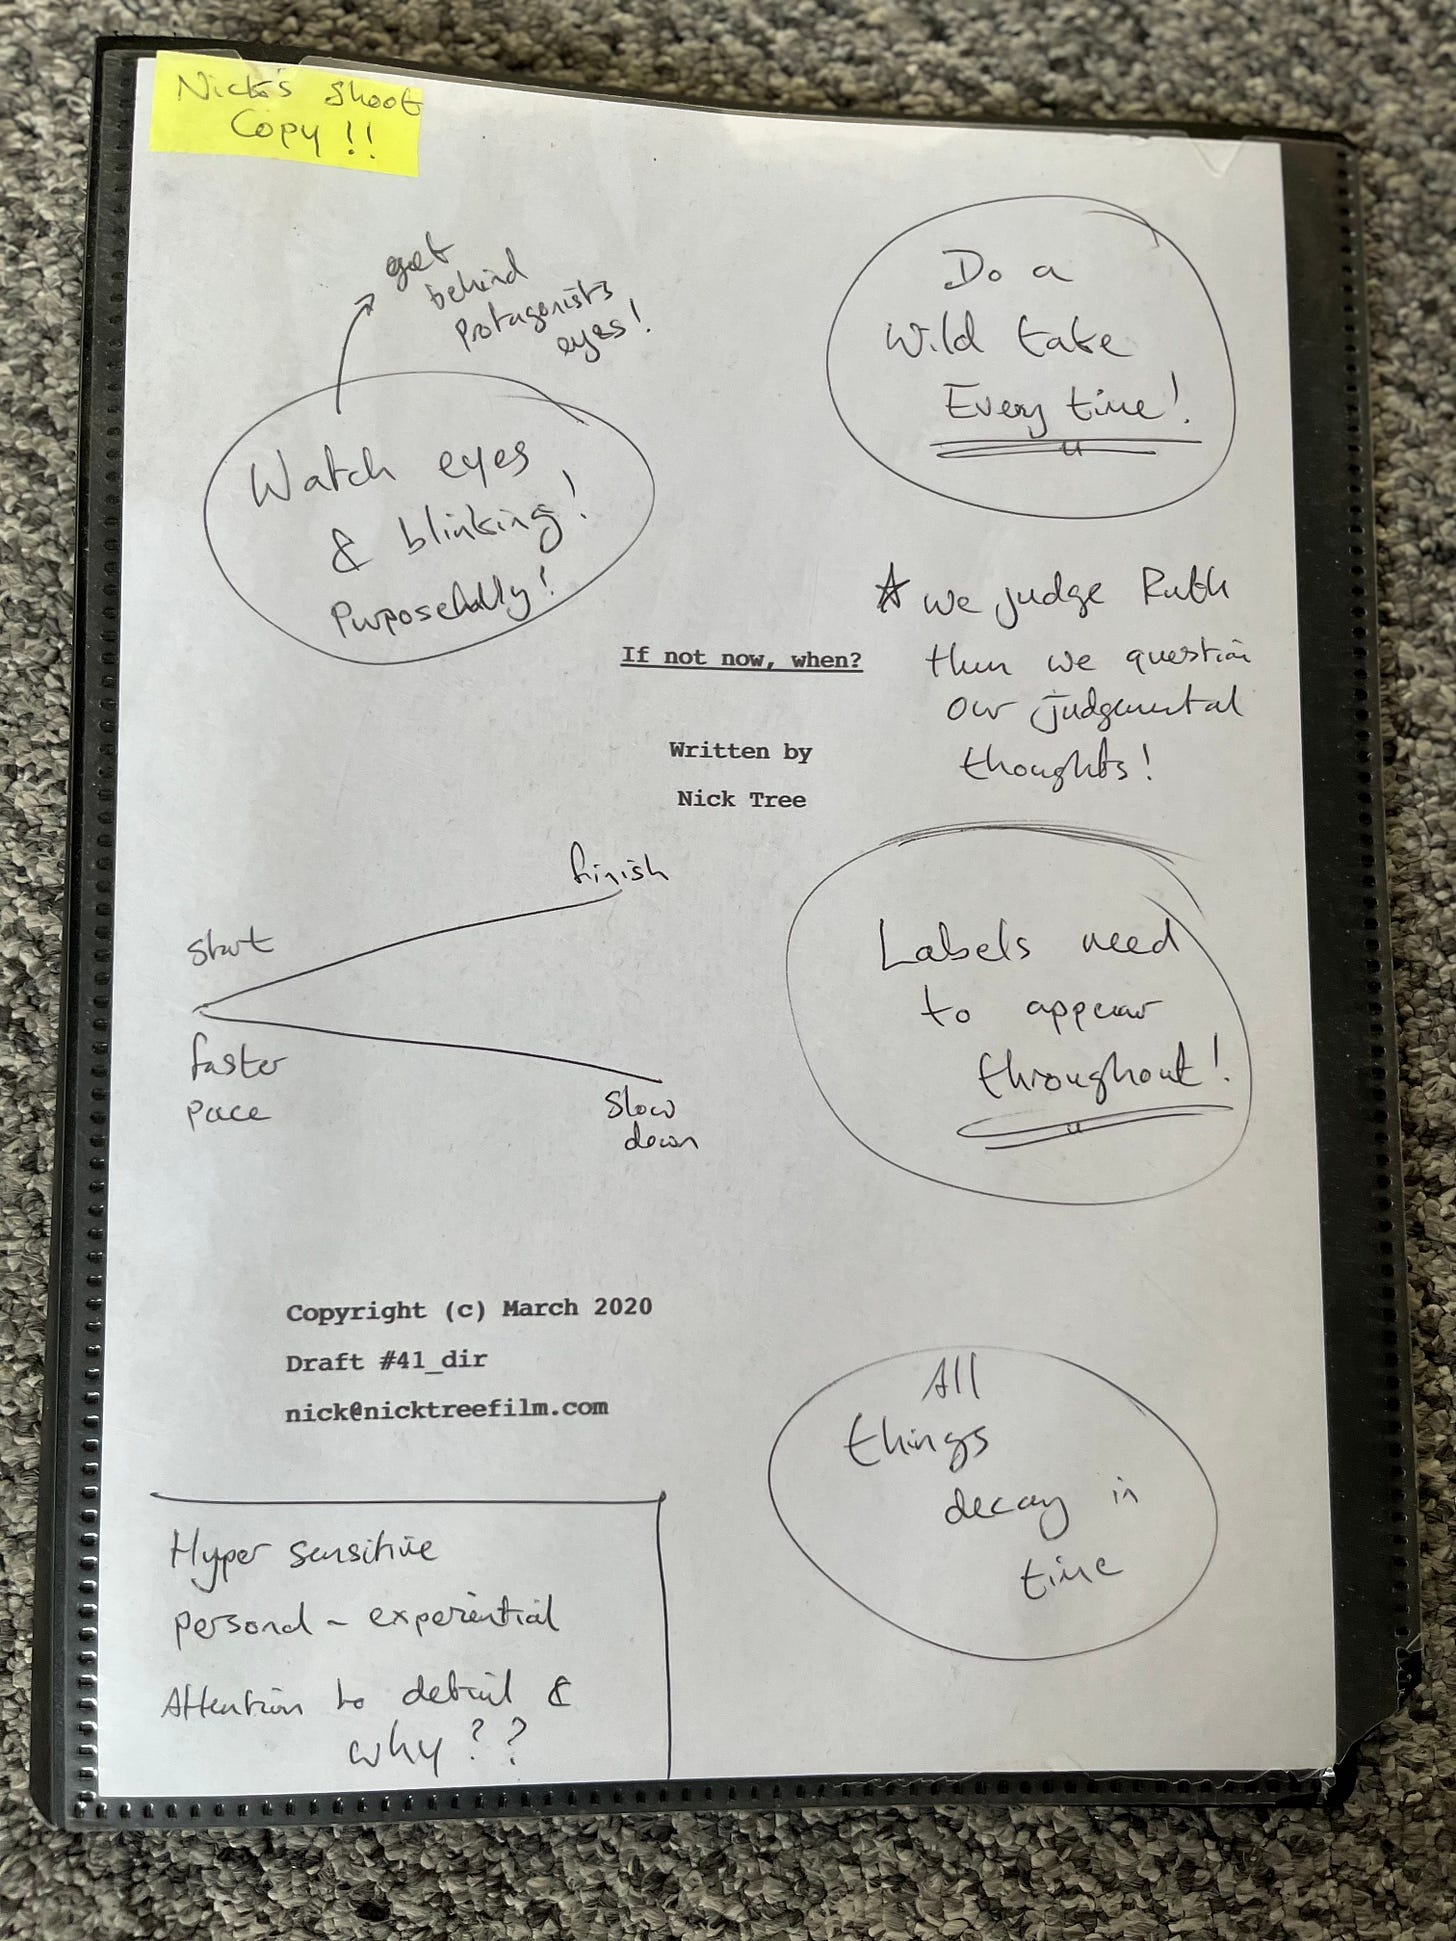 Nick's shoot
Copy!!
get
behind
protagonists
eyes!
Watch eyes
& blinking!
Purposefully!
Do a
Wild take
Every time!
☆ we judge Ruth
then we question
our judgemental
thoughts!
If not now, when?
Written by
Nick Tree
finish
Start
faster
pace
Slow
down
Labels need
to appear
throughout!
Copyright (c) March 2020
Draft #41_dir
nick@nicktreefilm.com
All
things
decay in
time
Hyper sensitive
personal - experiential
Attention to detail &
why??